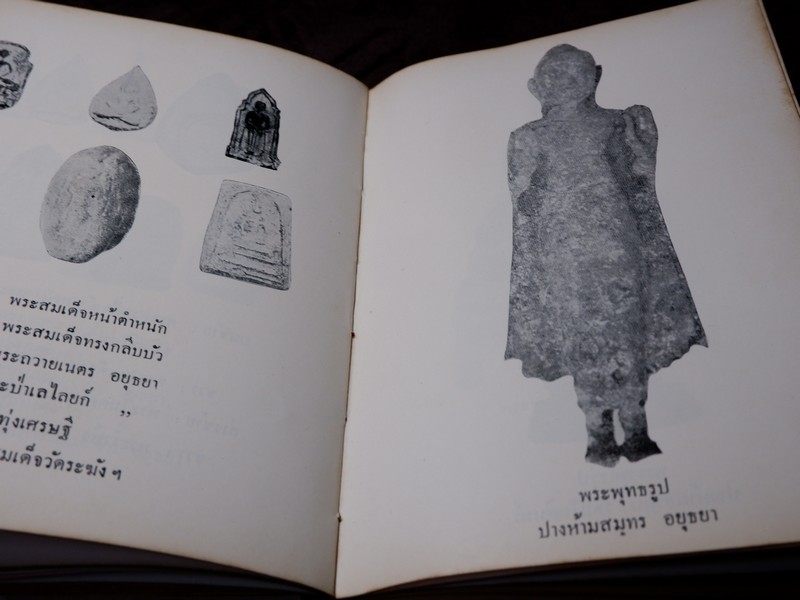 พระสมเด็จหน้าตำหนัก
พระสมเด็จทรงกลีบบัว
พระถวายเนตร อยุธยา
ะป่าเลไลยก์ ”
ทุ่งเศรษฐี
มเด็จวัดระฆัง ฯ
พระพุทธรูป
ปางห้ามสมุทร อยุธยา